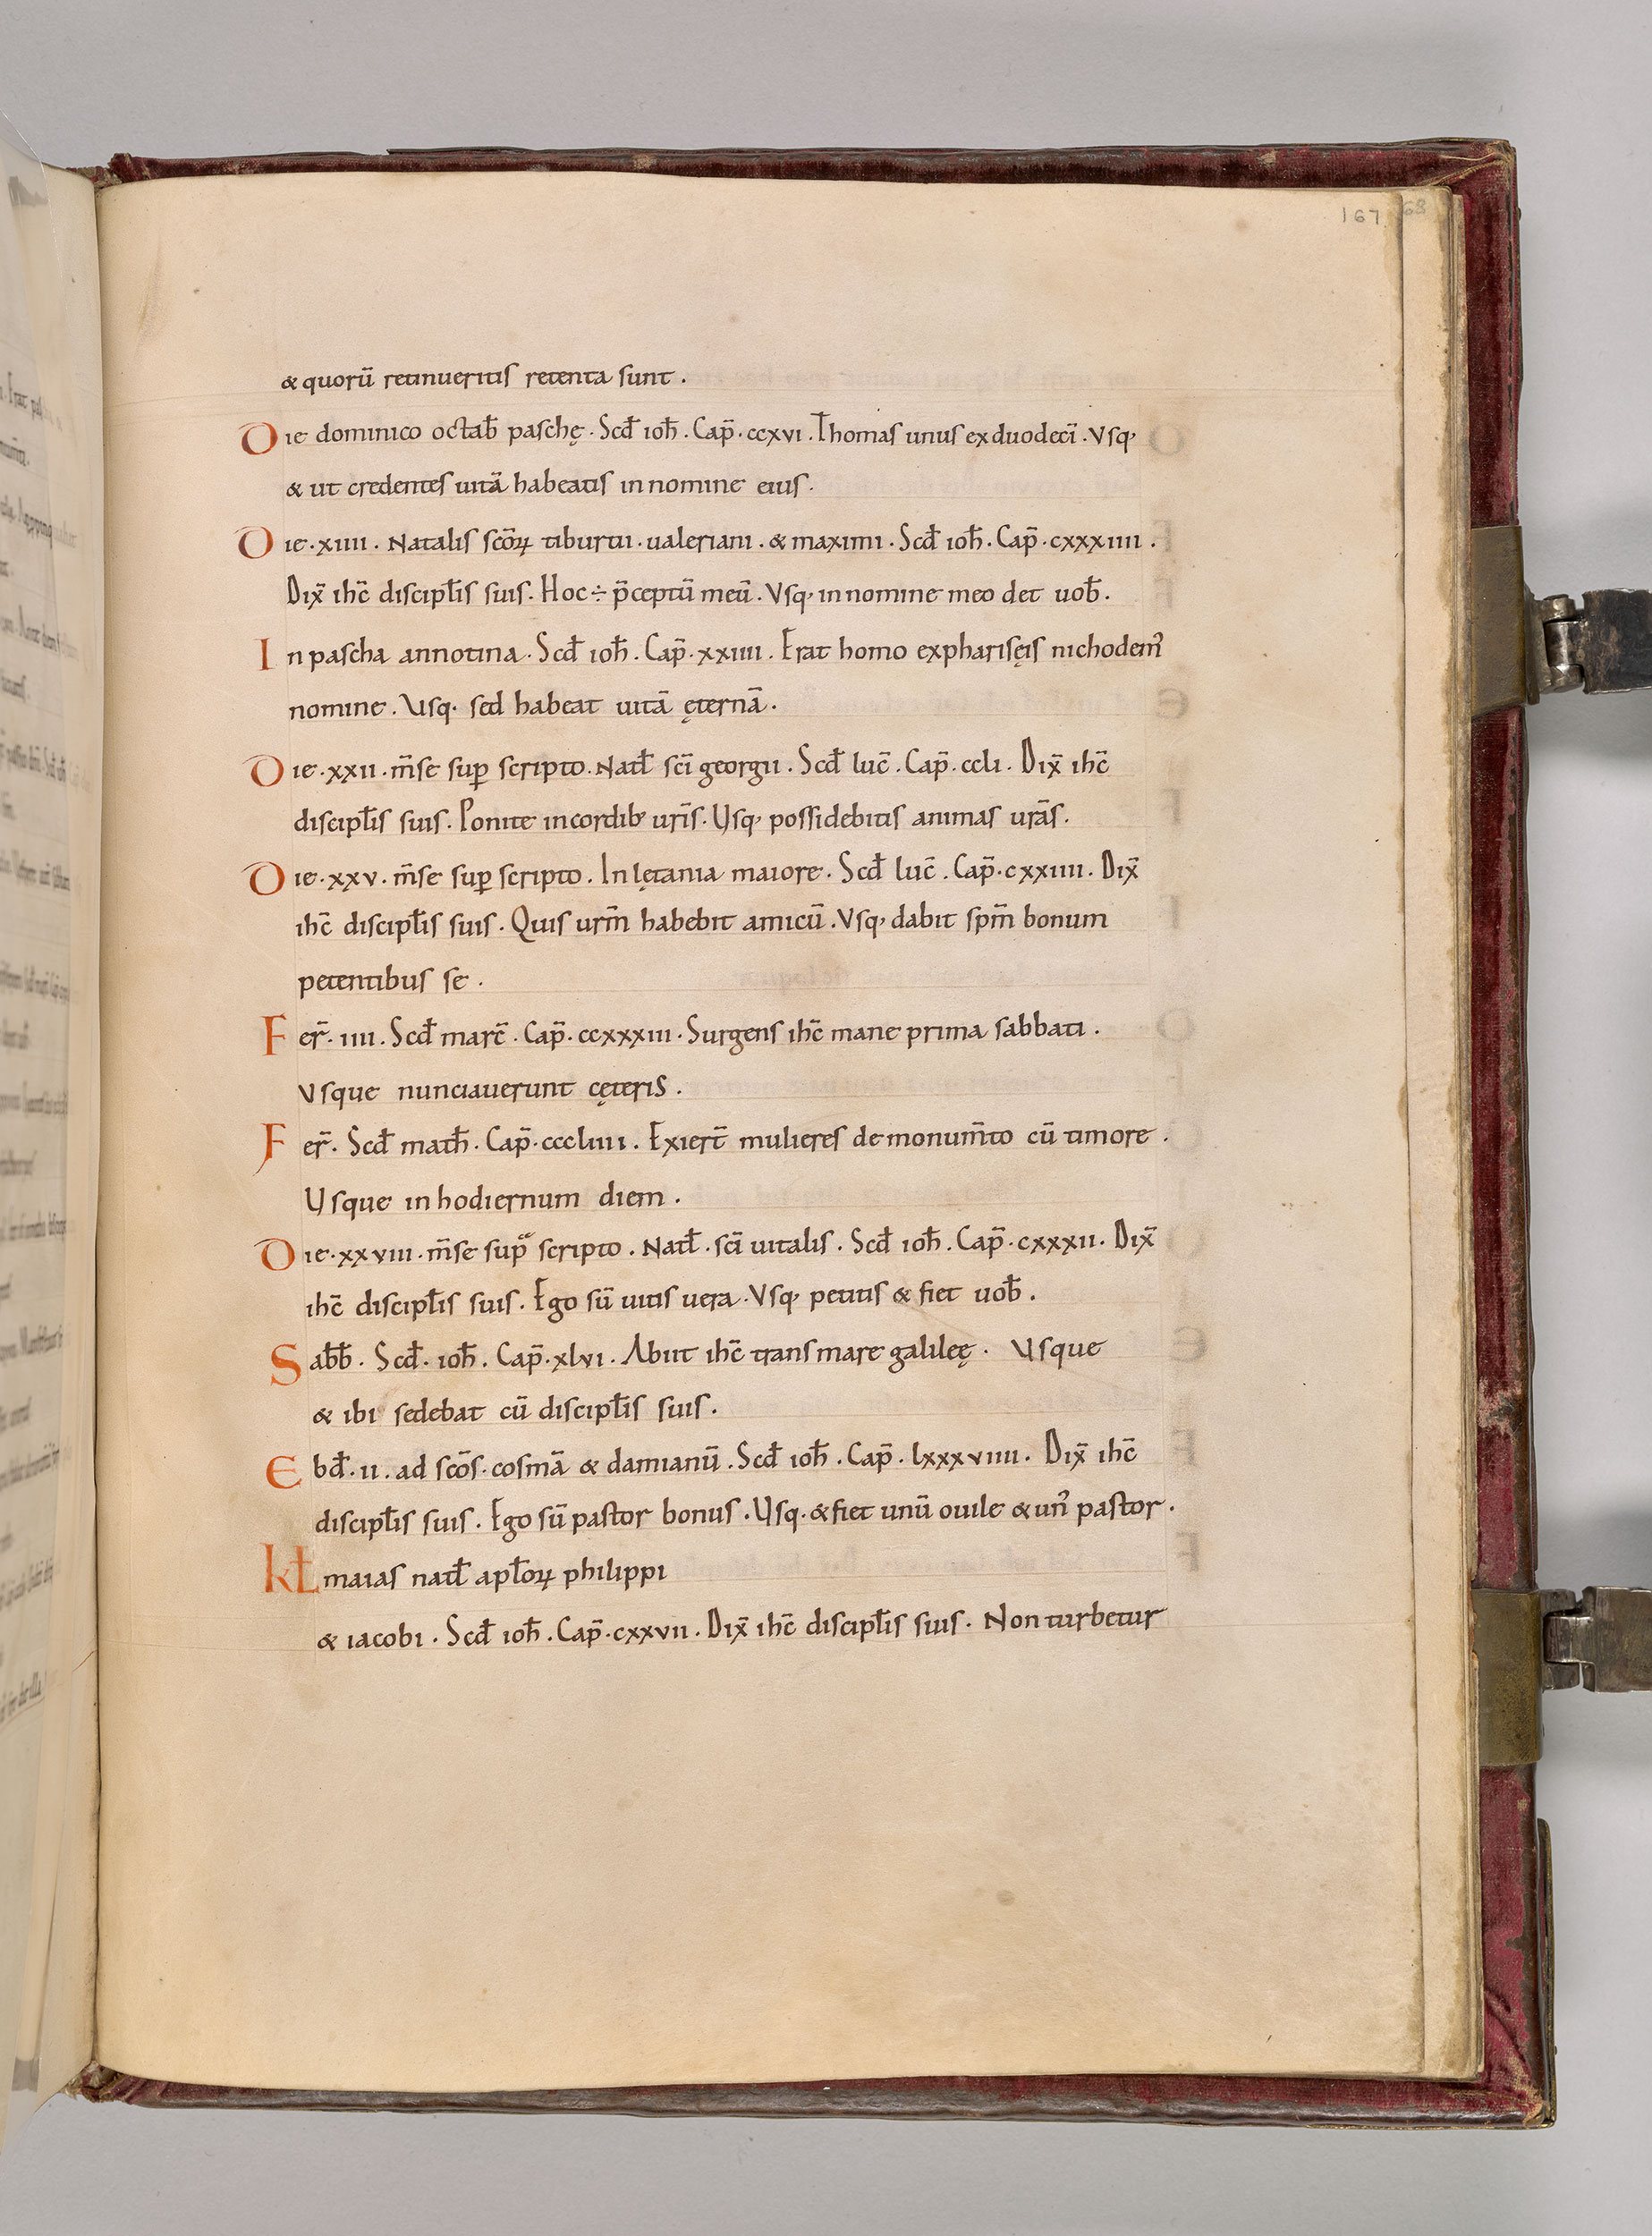 167 68
& quorū retinueritis retenta sunt .
Die dominico octab̄ paschę . Scd̄ ioh̄ . Cap̄ . ccxvi . Thomas unus ex duodeci͞ . Vsq,
& ut credentes uitā habeatis in nomine eius .
Die . xiiii . Natalis sc̄oꝝ tiburtii . ualeriani . & maximi . Scd̄ ioh̄ . Cap̄ . cxxxiiii .
Dix̄ ihc̄ discipl̄is suis . Hoc ÷ p̄ceptū meū . Vsq, in nomine meo det uob̄ .
In pascha annotina . Scd̄ ioh̄ . Cap̄ . xxiiii . Erat homo ex pharisęis nichodem᾿
nomine . Usq . sed habeat uitā ęternā .
Die . xxii . m̄se suꝑ scripto . Natl̄ sc̄i georgii . Scd̄ luc̄ . Cap̄ . ccli . Dix̄ ihc̄
discipl̄is suis . Ponite in cordib, ur̄is . Usq, possidebitis animas urās .
Die . xxv . m̄se suꝑ scripto . In lętania maiore . Scd̄ luc̄ . Cap̄ . cxxiiii . Dix̄
ihc̄ discipl̄is suis . Quis urm̄ habebit amicū . Vsq, dabit spm̄ bonum
petentibus se .
Fer̄ . iiii . Scd̄ marc̄ . Cap̄ . ccxxxiii . Surgens ihc̄ mane prima sabbati .
Vsque nunciauerunt cęteris .
Fer̄ . Scd̄ math̄ . Cap̄ . cccliiii . Exiert̄ mulieres de monum̄to cū timore .
Usque in hodiernum diem .
Die . xxviii . m̄se sup̄ scripto . Natl̄ . sc̄i uitalis . Scd̄ ioh̄ . Cap̄ . cxxxii . Dix̄
ihc̄ discipl̄is suis . Ego sū uitis uera . Vsq, petitis & fiet uob̄ .
Sab̄b̄ . Scd̄ . ioh̄ . Cap̄ . xlvi . Abiit ihc̄ trans mare galileę . Usque
& ibi sedebat cū discipl̄is suis .
Ebd̄ . ii . ad sc̄os . cosmā & damianū . Scd̄ ioh̄ . Cap̄ . lxxxviiii . Dix̄ ihc̄
discipl̄is suis . Ego sū pastor bonus . Usq . & fiet unū ouile & un᾿ pastor .
kl̄ maias natl̄ apl̄oꝝ philippi
& iacobi . Scd̄ ioh̄ . Cap̄ . cxxvii . Dix̄ ihc̄ discipl̄is suis . Non turbetur